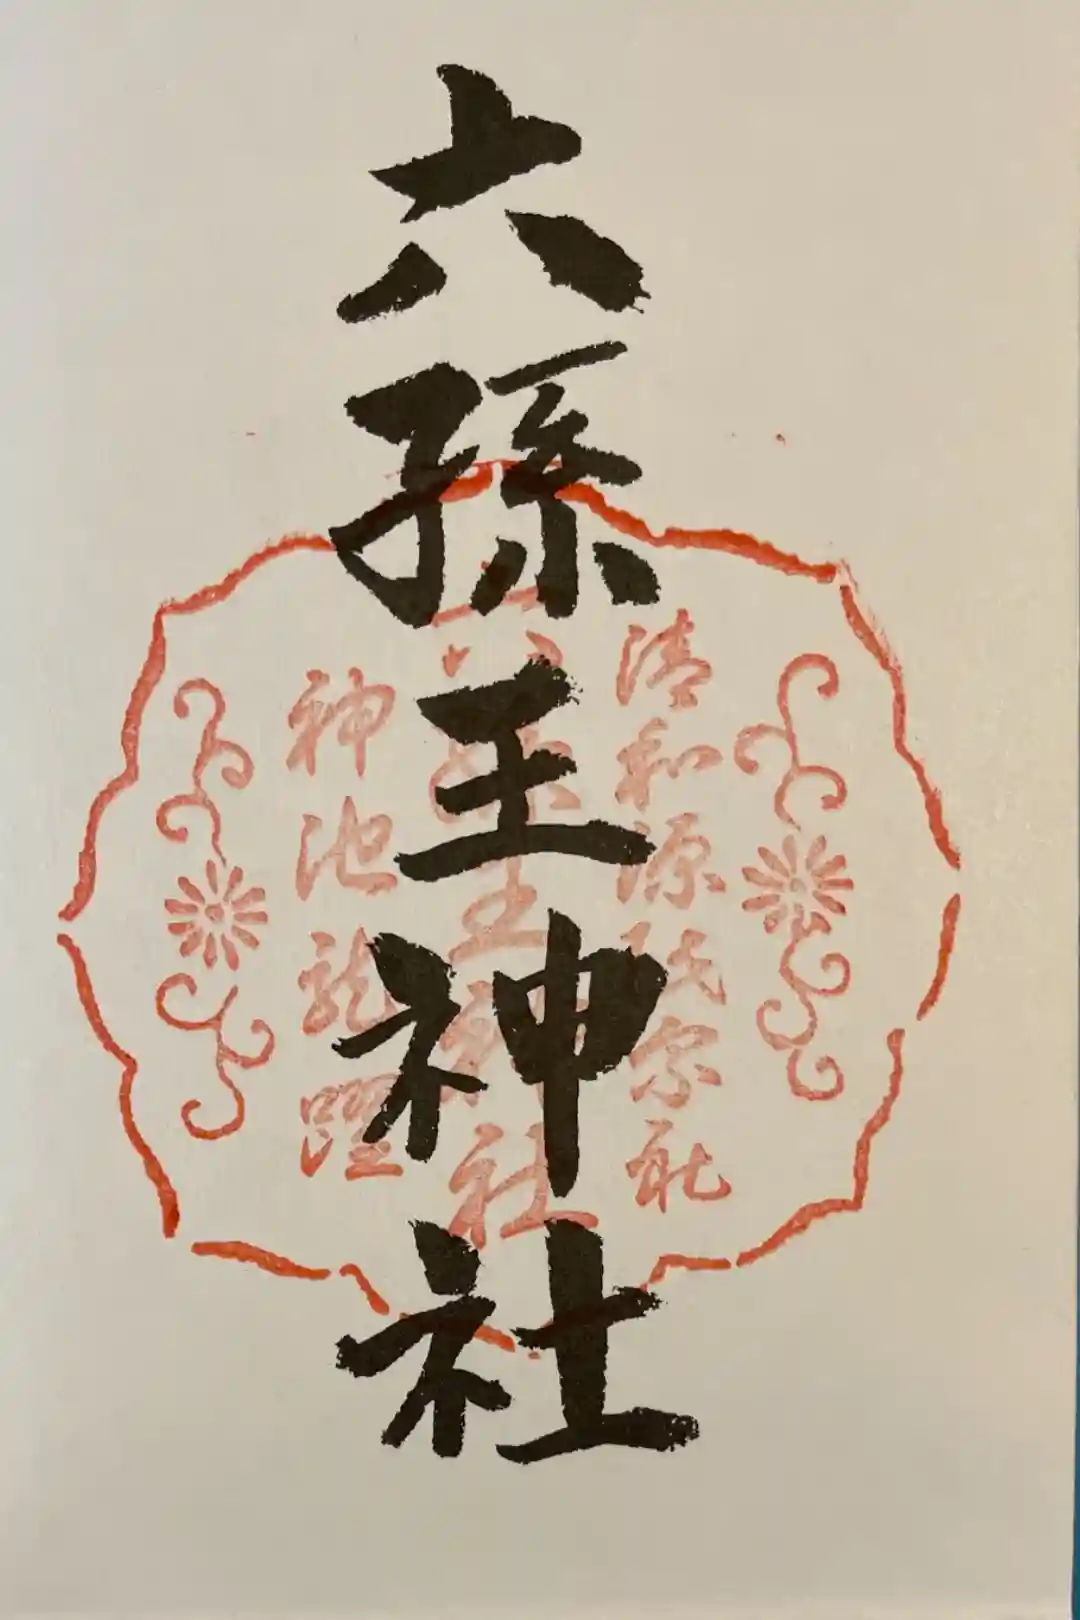 六孫王神社
清和源氏宗祀
六孫王神社
神池龍躍